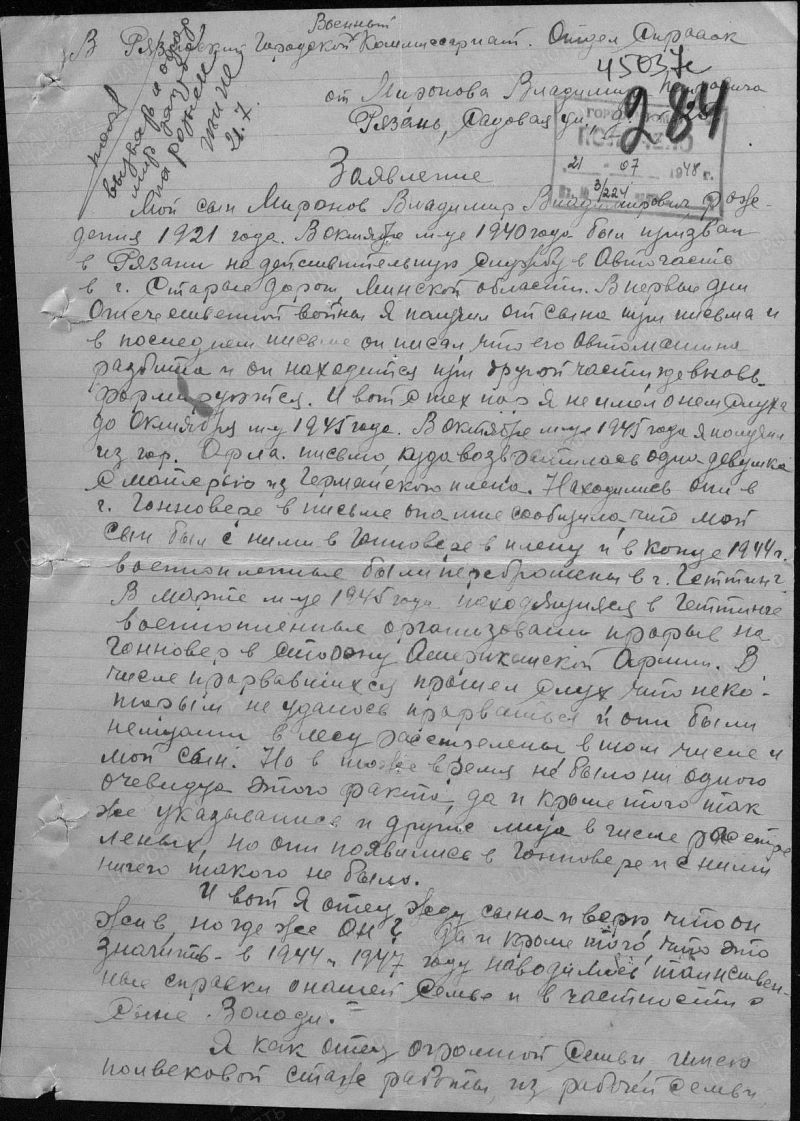 Военный
В Рязанский Городской Комиссариат. Отдел Справок
45037с
от Миронова Владимира
Рязань, Садовая ул.
284
21 - 07 1948 г.
3/224
вызвать
21.7.
Заявление
Мой сын Миронов Владимир Владимирович, рож-
дения 1921 года. В октябре м-це 1940 года был призван
в Рязани на действительную службу в Авточасть
в г. Старые дороги Минской области. В первые дни
Отечественной войны я получил от сына три письма и
в последнем письме он писал, что его Автомашина
разбита и он находится при другой части где вновь
формируются. И вот с тех пор я не имел о нем слуха
до Октября м-ц 1945 года. В октябре м-це 1945 года я получил
из гор. Орла. письмо куда возвратилась одна девушка
с матерью из Германского плена. Находились они в
г. Ганновере в письме она мне сообщила, что мой
сын был с ними в Ганновере в плену и в конце 1944 г.
военнопленные были переброшены в г. Геттинг
В марте м-це 1945 года находящиеся в Геттинге
военнопленные организовали прорыв на
Ганновер в сторону Американской Армии. В
числе прорвавшихся прошел слух что неко-
торым не удалось прорваться и они были
немцами в лесу расстрелены в том числе и
мой сын. Но в тоже время не было ни одного
очевидца этого факта, да и кроме того так
же указывались и другие лица в числе расстре
леных, но они появились в Ганновере и с ними
ничего такого не было.
И вот я отец жду сына и верю, что он
жив, но где же он? да и кроме того, что это
значить - в 1944 и 1947 году наводились таинствен-
ные справки о нашей семье и в частности о
сыне Володи. -
Я как отец огромной семьи, имею
полвековой стаж работы, из рабочей семьи